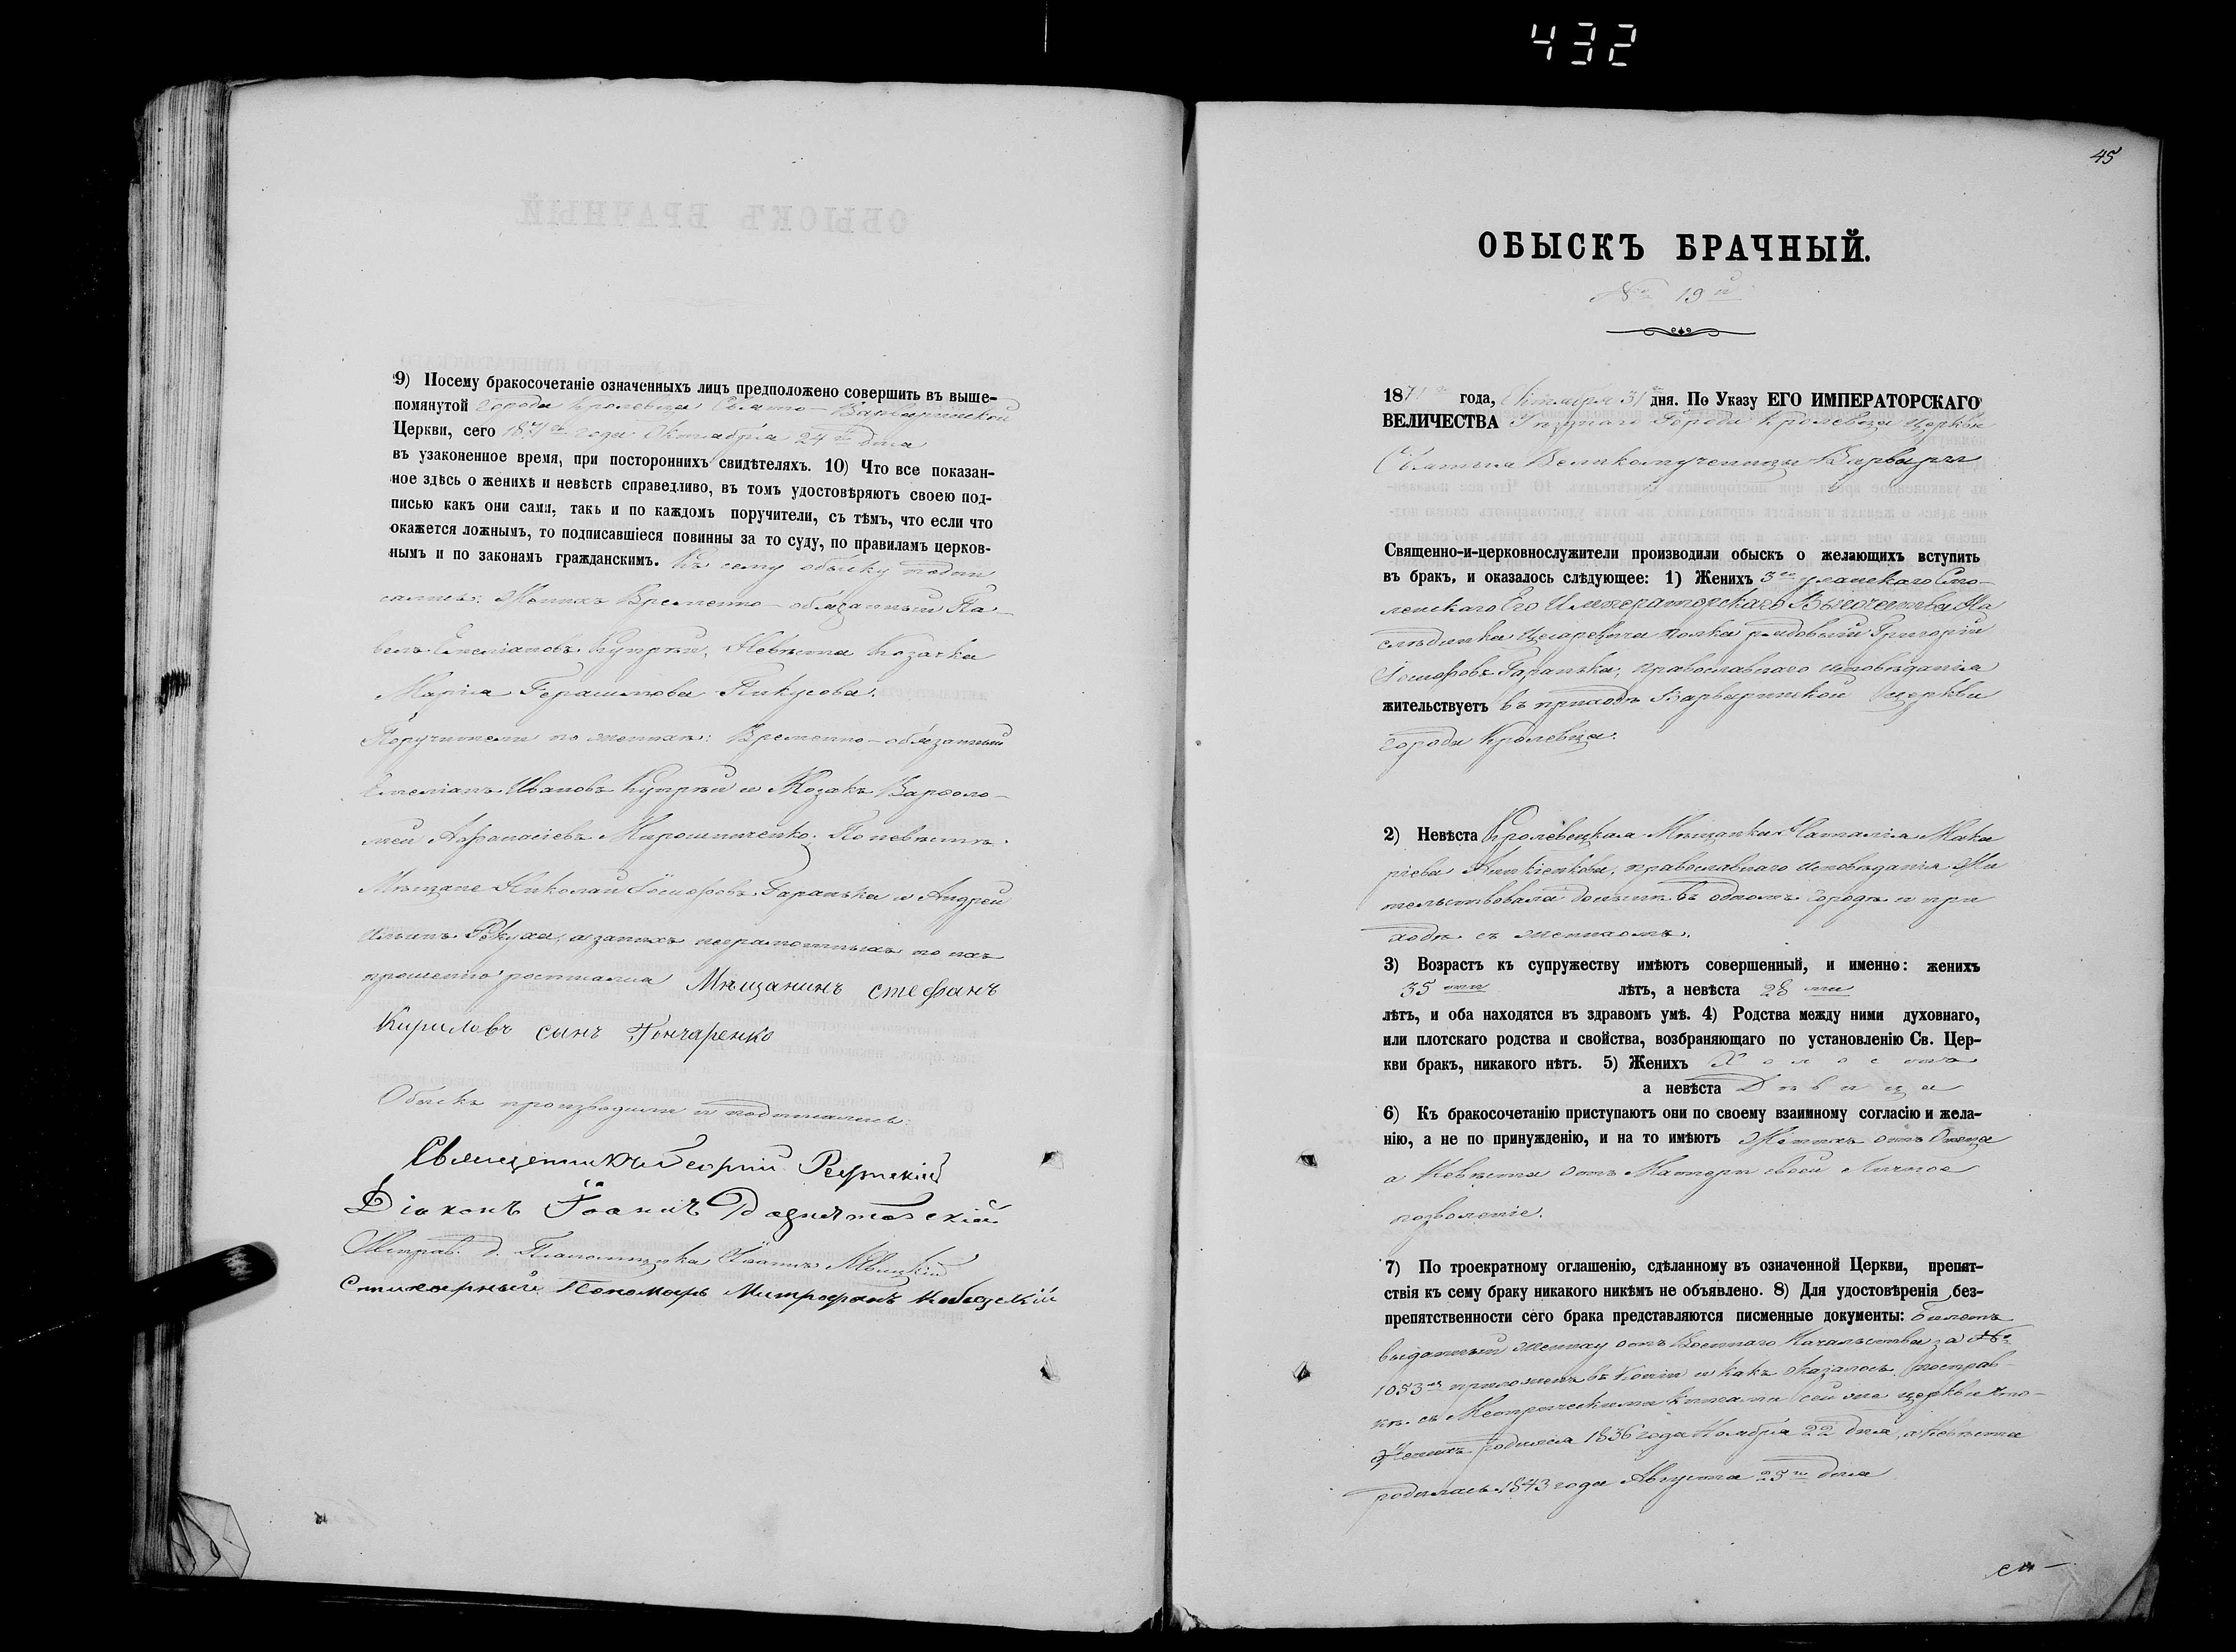 432
9) Посему бракосочетаніе означенныхъ лицъ предположено совершить въ выше-
помянутой города Кролевца Свято-Варваринской
Церкви, сего 1871го года Октября 24го дня
въ узаконенное время, при постороннихъ свидѣтеляхъ. 10) Что все показан-
ное здѣсь о женихѣ и невѣстѣ справедливо, въ томъ удостовѣряютъ своею под-
писью какъ они сами, такъ и по каждомъ поручители, съ тѣмъ, что если что
окажется ложнымъ, то подписавшіеся повинны за то суду, по правиламъ церков-
нымъ и по законамъ гражданскимъ. Къ сему обыску подпи
сались: Женихъ Временно-обязанный Па-
велъ Емеліановъ Купрѣй, Невѣста Козачка
Марія Герасимова Пикусова.
Поручители по женихѣ: Временно-обязанный
Емеліанъ Ивановъ Купрѣй и Козакъ Варѳоло-
мей Афанасіевъ Мирошниченко. По невѣстѣ
Мѣщане Николай Іосифовъ Гаранька и Андрей
Ильинъ а за нихъ неграмотныхъ по ихъ
прошенію росписался Мѣщанинъ стефанъ
Кириловъ сынъ Гончаренко
Обыскъ производили и подписались:
Священникъ Георгій
Діаконъ Іоаннъ
Исправ. д. Псаломщика Іоаннъ
Стихарный Пономарь Митрофанъ
45
ОБЫСКЪ БРАЧНЫЙ.
№ 19й
1871го года, Октября 31го дня. По Указу ЕГО ИМПЕРАТОРСКАГО
ВЕЛИЧЕСТВА Уѣзднаго Города Кролевца Церкви
Святыя Великомученицы Варвары
Священно-и-церковнослужители производили обыскъ о желающихъ вступить
въ бракъ, и оказалось слѣдующее: 1) Женихъ 3го уланскаго Смо-
ленскаго Его Императорскаго Высочества На
слѣдника Цесаревича полка рядовый Григорій
Іосифовъ Гаранька, православнаго исповѣданія
жительствуетъ въ приходѣ Варваринской церкви
города Кролевца.
2) Невѣста Кролевецкая Мѣщанка Наталія Мака
ріева православнаго исповѣданія Жи
тельствовала донынѣ въ одномъ городѣ и при
ходѣ съ женихомъ.
3) Возрастъ къ супружеству имѣютъ совершенный, и именно: женихъ
35ти лѣтъ, а невѣста 28ми
лѣтъ, и оба находятся въ здравомъ умѣ. 4) Родства между ними духовнаго,
или плотскаго родства и свойства, возбраняющаго по установленію Св. Цер-
кви бракъ, никакого нѣтъ. 5) Женихъ Холостъ
а невѣста Дѣвица
6) Къ бракосочетанію приступаютъ они по своему взаимному согласію и жела-
нію, а не по принужденію, и на то имѣютъ Женихъ отъ Отца
а Невѣста отъ Матери своей Личное
позволеніе.
7) По троекратному оглашенію, сдѣланному въ означенной Церкви, препят-
ствія къ сему браку никакого никѣмъ не объявлено. 8) Для удостовѣренія без-
препятственности сего брака представляются писменные документы: билетъ
выданный жениху отъ Военнаго Начальства за №
1053м приложенъ въ копіи и какъ оказалось по справ-
кѣ съ Метрическими книгами сей же церкви что-
Женихъ родился 1836 года Ноября 22 дня, а Невѣста
родилась 1843 года Августа 25го дня